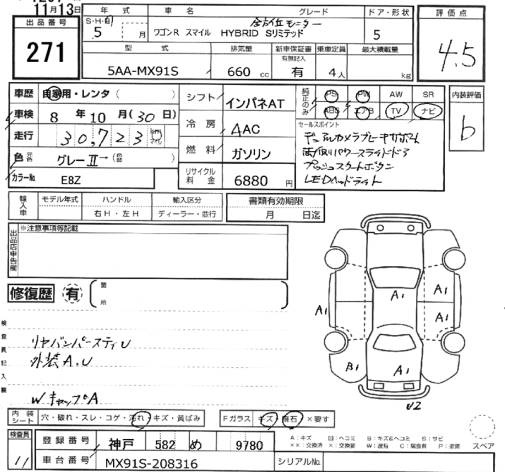 11月13日
出品番号
271
年式 車名 グレード ドア・形状
S・H・R
5 月 ワゴンR スマイル HYBRID Sリミテッド 5
型式 排気量 新車保証書 有無記入 乗車定員 最大積載量
5AA-MX91S 660 cc 有 4人 kg
評価点
4.5
車歴 自家用・レンタ ( )
車検 8年 10月 (30日)
走行 30,723
色 グレーII→( )
カラーNo. E8Z
シフト インパネAT
冷房 AAC
燃料 ガソリン
リサイクル料金 6880円
純正のみ PS PW AW SR
ABS エアB TV ナビ
セールスポイント
デュアルカメラブレーキサポート
両側パワースライドドア
プッシュスタートボタン
LEDヘッドライト
内装評価
b
輸入車 モデル年式 ハンドル 輸入区分
年 右H・左H ディーラー・並行
書類有効期限
月 日迄
※注意事項等記載
修復歴 有
箇所
検査員記入欄
リヤバンパースティU
外装A、U
WキャップA
A1
A1
A1
A1
B1
A1
U2
スペア
内装シート 穴・破れ・スレ・コゲ・汚れ・キズ・黄ばみ
Fガラス キズ・飛石・×要す
検査員
11
登録番号 神戸 582 め 9780
車台番号 MX91S-208316
シリアルNo.
A:キズ